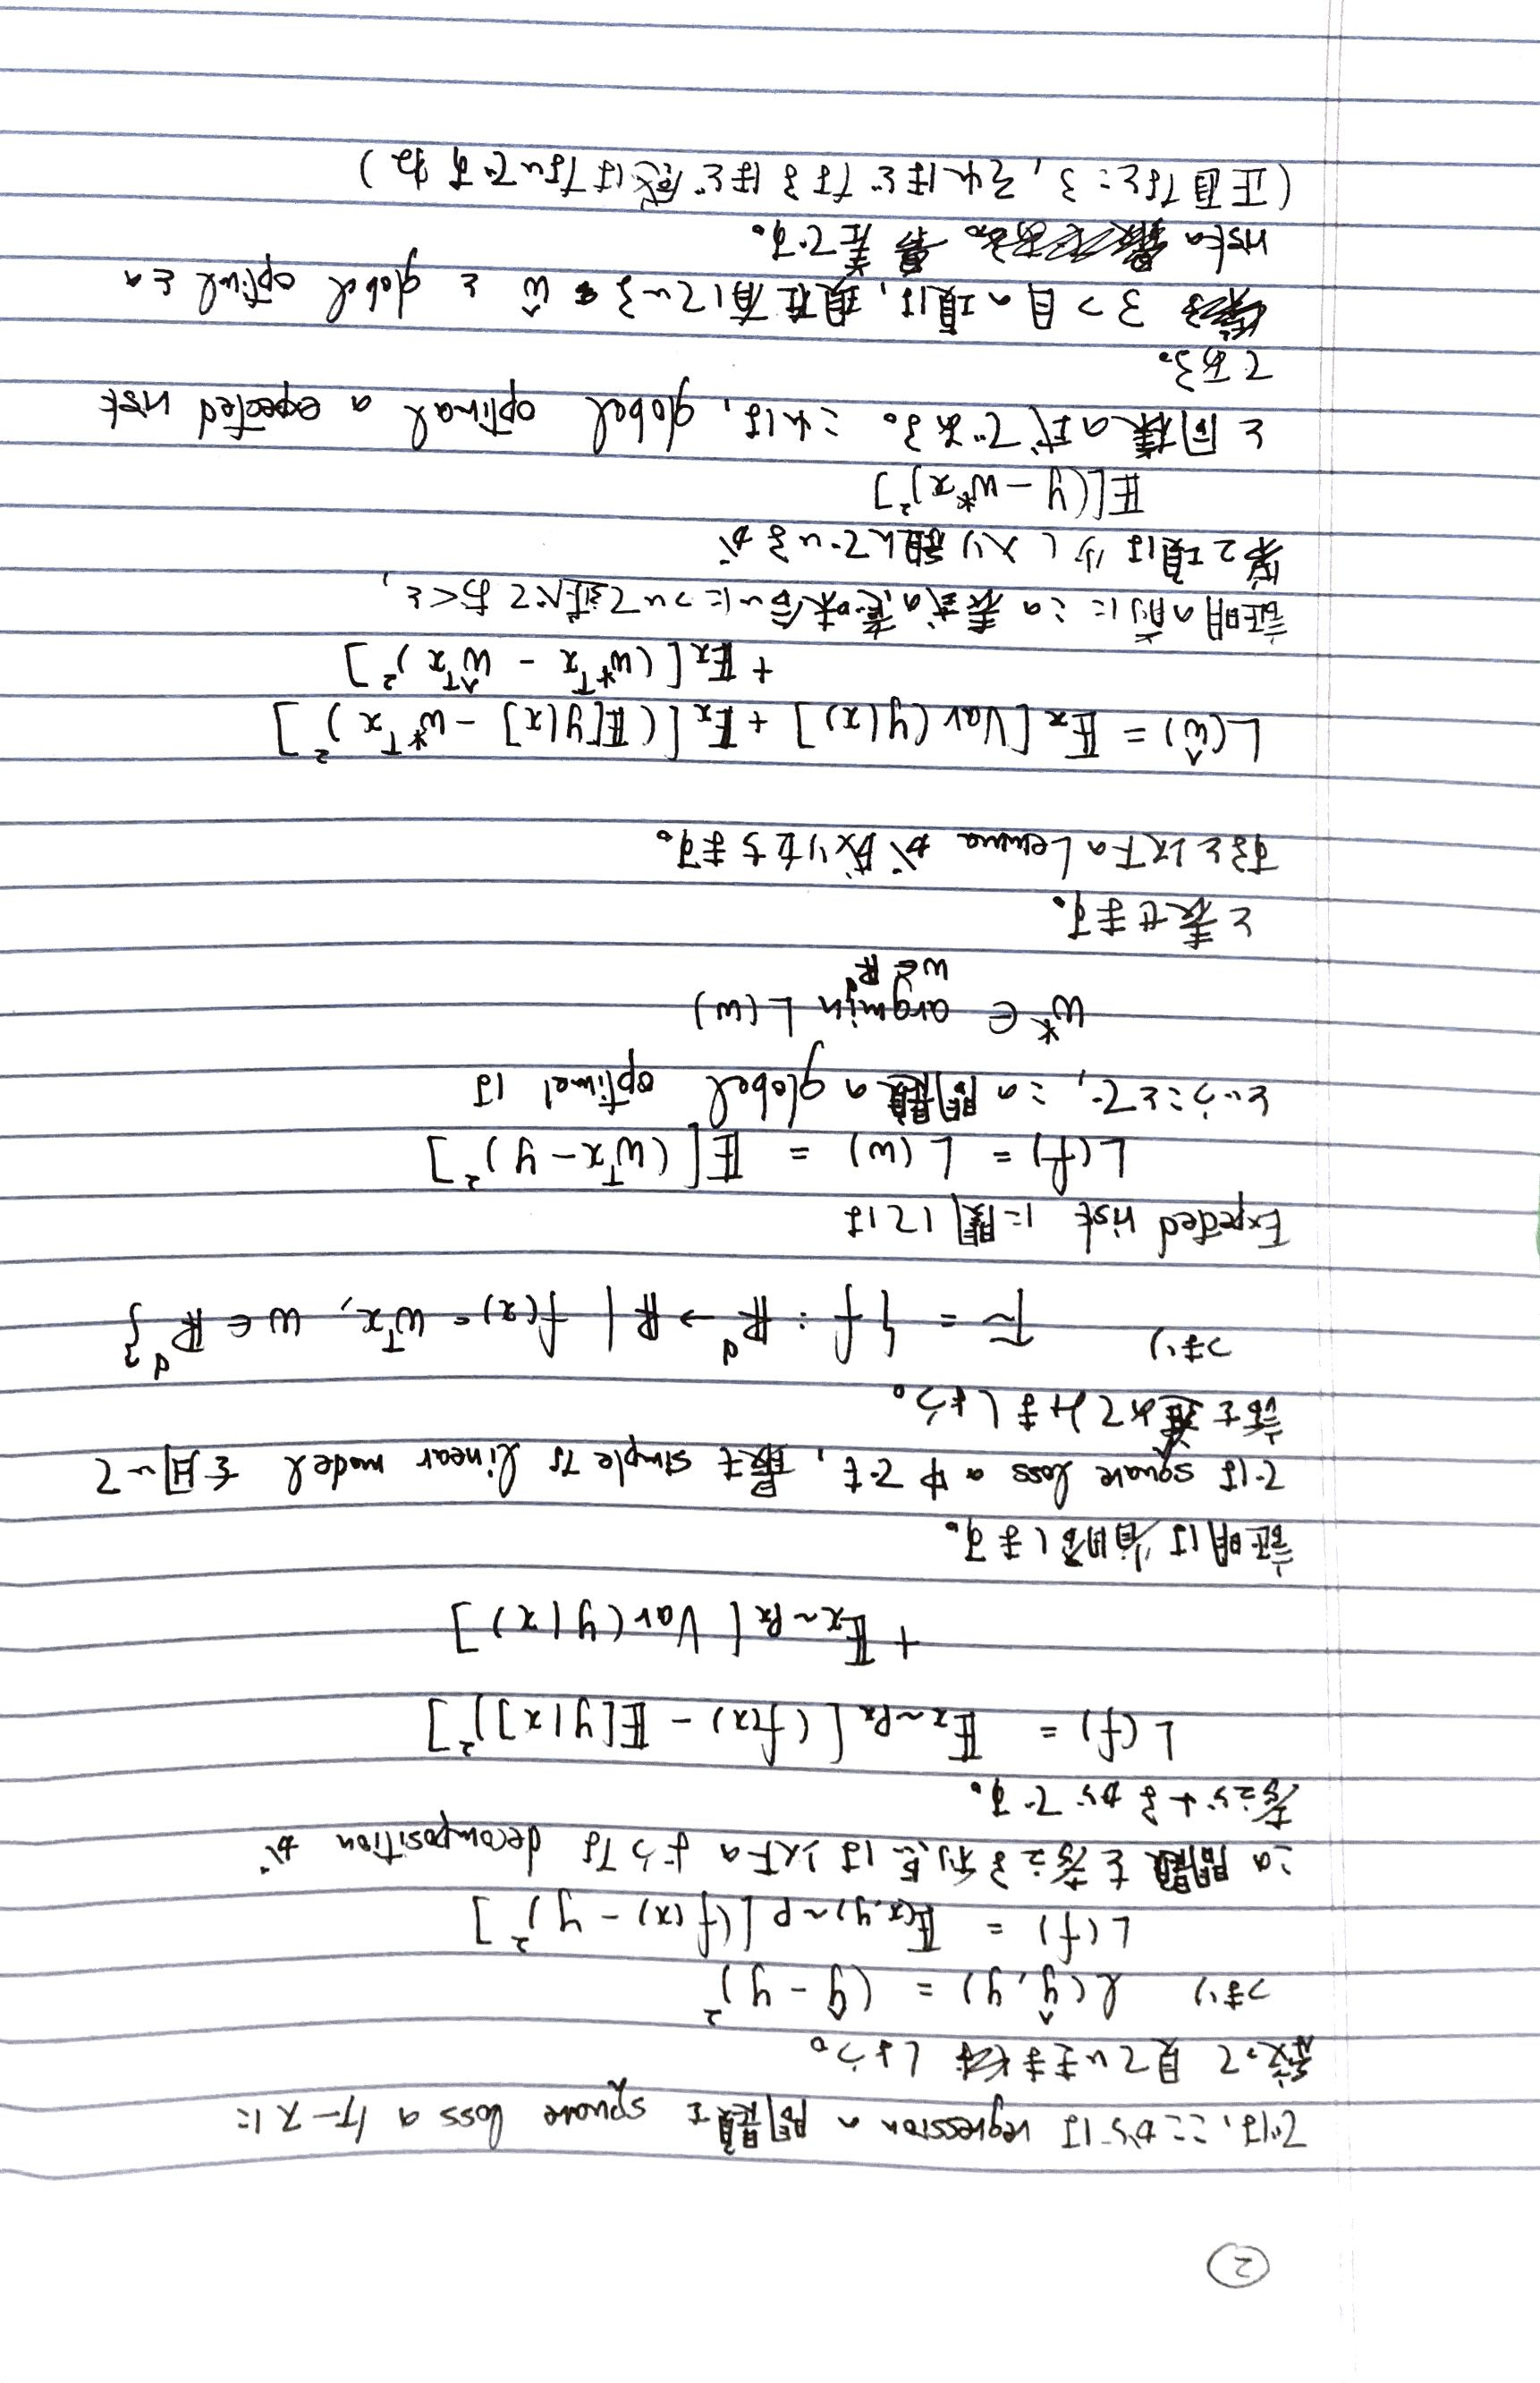 ②
では、ここからは regression の問題を square loss のケースに
絞って見ていきましょう。
つまり ℓ(ŷ, y) = (ŷ - y)²
L(f) = 𝔼(x,y)~P [(f(x) - y)²]
この問題を考える利点は以下のような decomposition が
考えられるからです。
L(f) = 𝔼x~Px [(f(x) - 𝔼[y|x])²]
+ 𝔼x~Px [Var(y|x)]
証明は省略します。
では square loss の中でも、最も simple な linear model を用いて
話を進めてみましょう。
つまり = {f : ℝᵈ → ℝ | f(x) = wᵀx, w ∈ ℝᵈ}
Expected risk に関しては
L(f) = L(w) = 𝔼[(wᵀx - y)²]
ということで、この問題の global optimal は
w* ∈ argmin L(w)
w∈ℝᵈ
と表せます。
すると以下の Lemma が成り立ちます。
L(ŵ) = 𝔼x [Var(y|x)] + 𝔼x [(𝔼[y|x] - w*ᵀx)²]
+ 𝔼x [(w*ᵀx - ŵᵀx)²]
証明の前にこの表式の意味合いについて述べておくと、
第2項は少し入り組んでいるが
𝔼[(y - w*x)²]
と同様の式である。これは、global optimal の expected risk
である。
3つ目の項は、現在有している ŵ と global optimal との
risk の 差です。
(正直なところ、それほどなるほど感はないですがね)